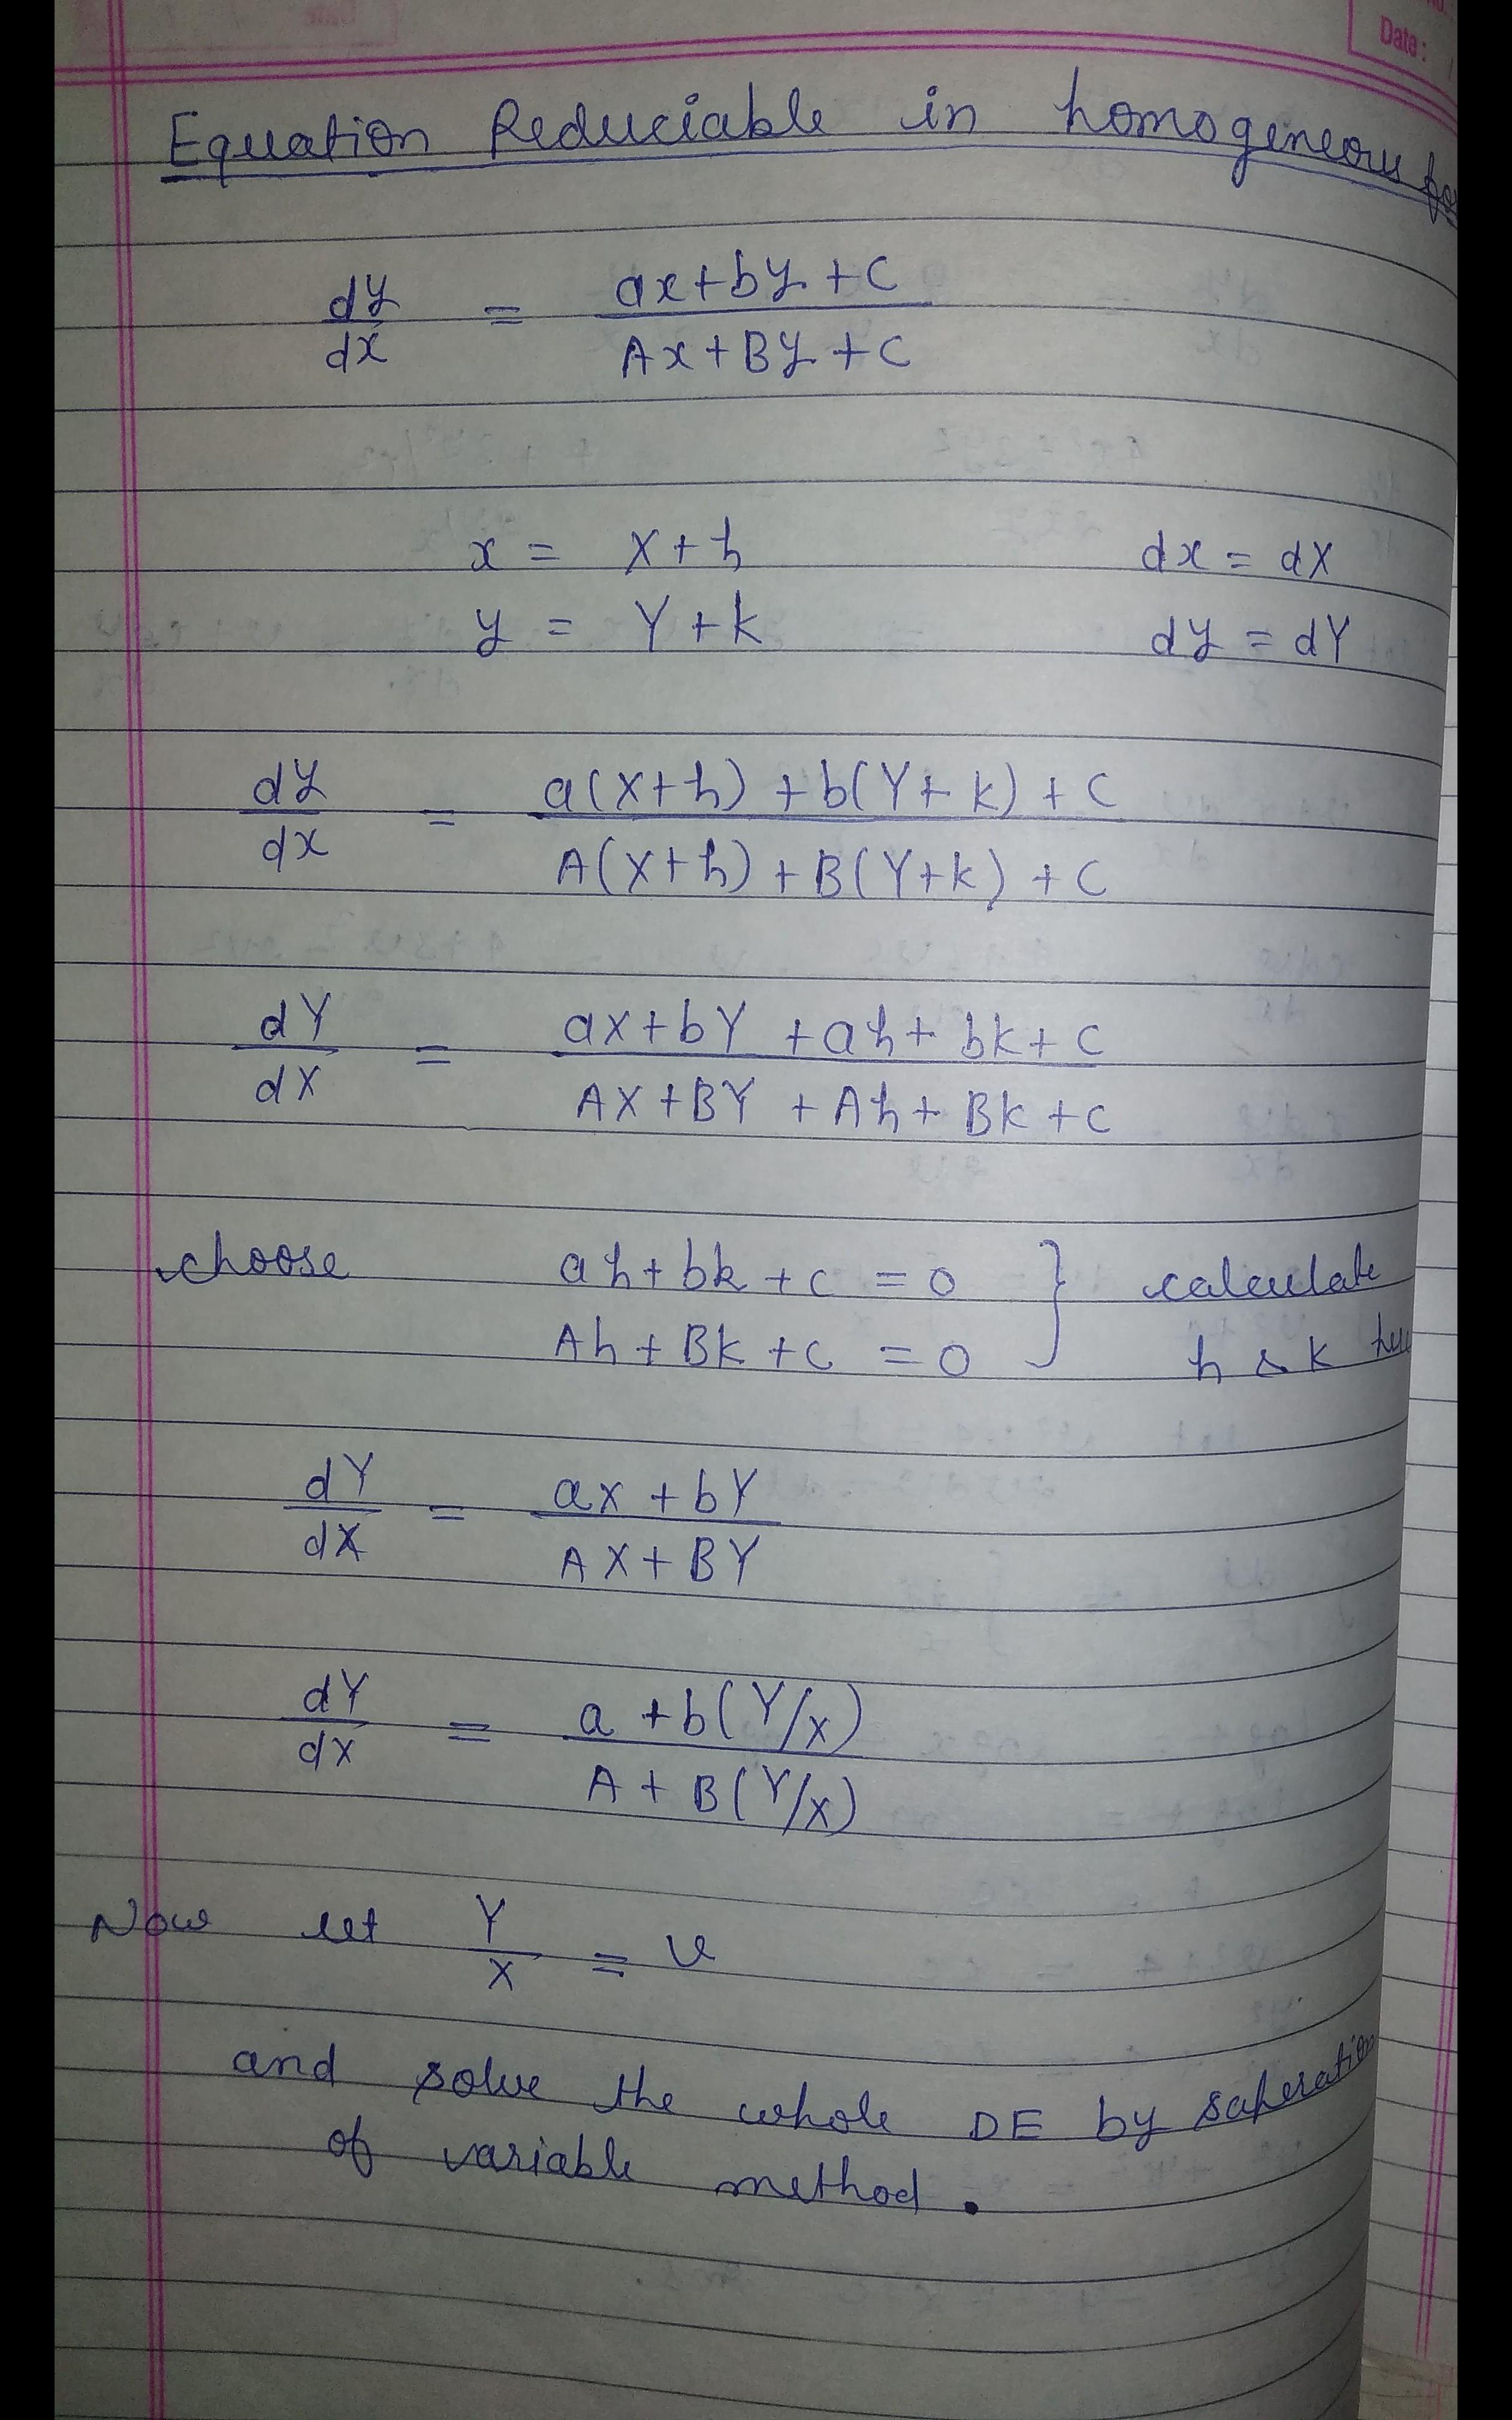 Date :
Equation Reduciable in homogeneous
dy/dx = ax+by+c / Ax+By+c
x = X+h dx = dX
y = Y+k dy = dY
dy/dx = a(X+h) +b(Y+k) + c / A(X+h) +B(Y+k) + c
dY/dX = aX+bY +ah+ bk+c / AX+BY +Ah+ Bk+c
choose ah+bk+c = 0 } calculate
Ah+Bk+c = 0 h & k
dY/dX = aX +bY / AX+BY
dY/dX = a +b(Y/X) / A + B(Y/X)
Now let Y/X = v
and solve the whole DE by saperation
of variable method.